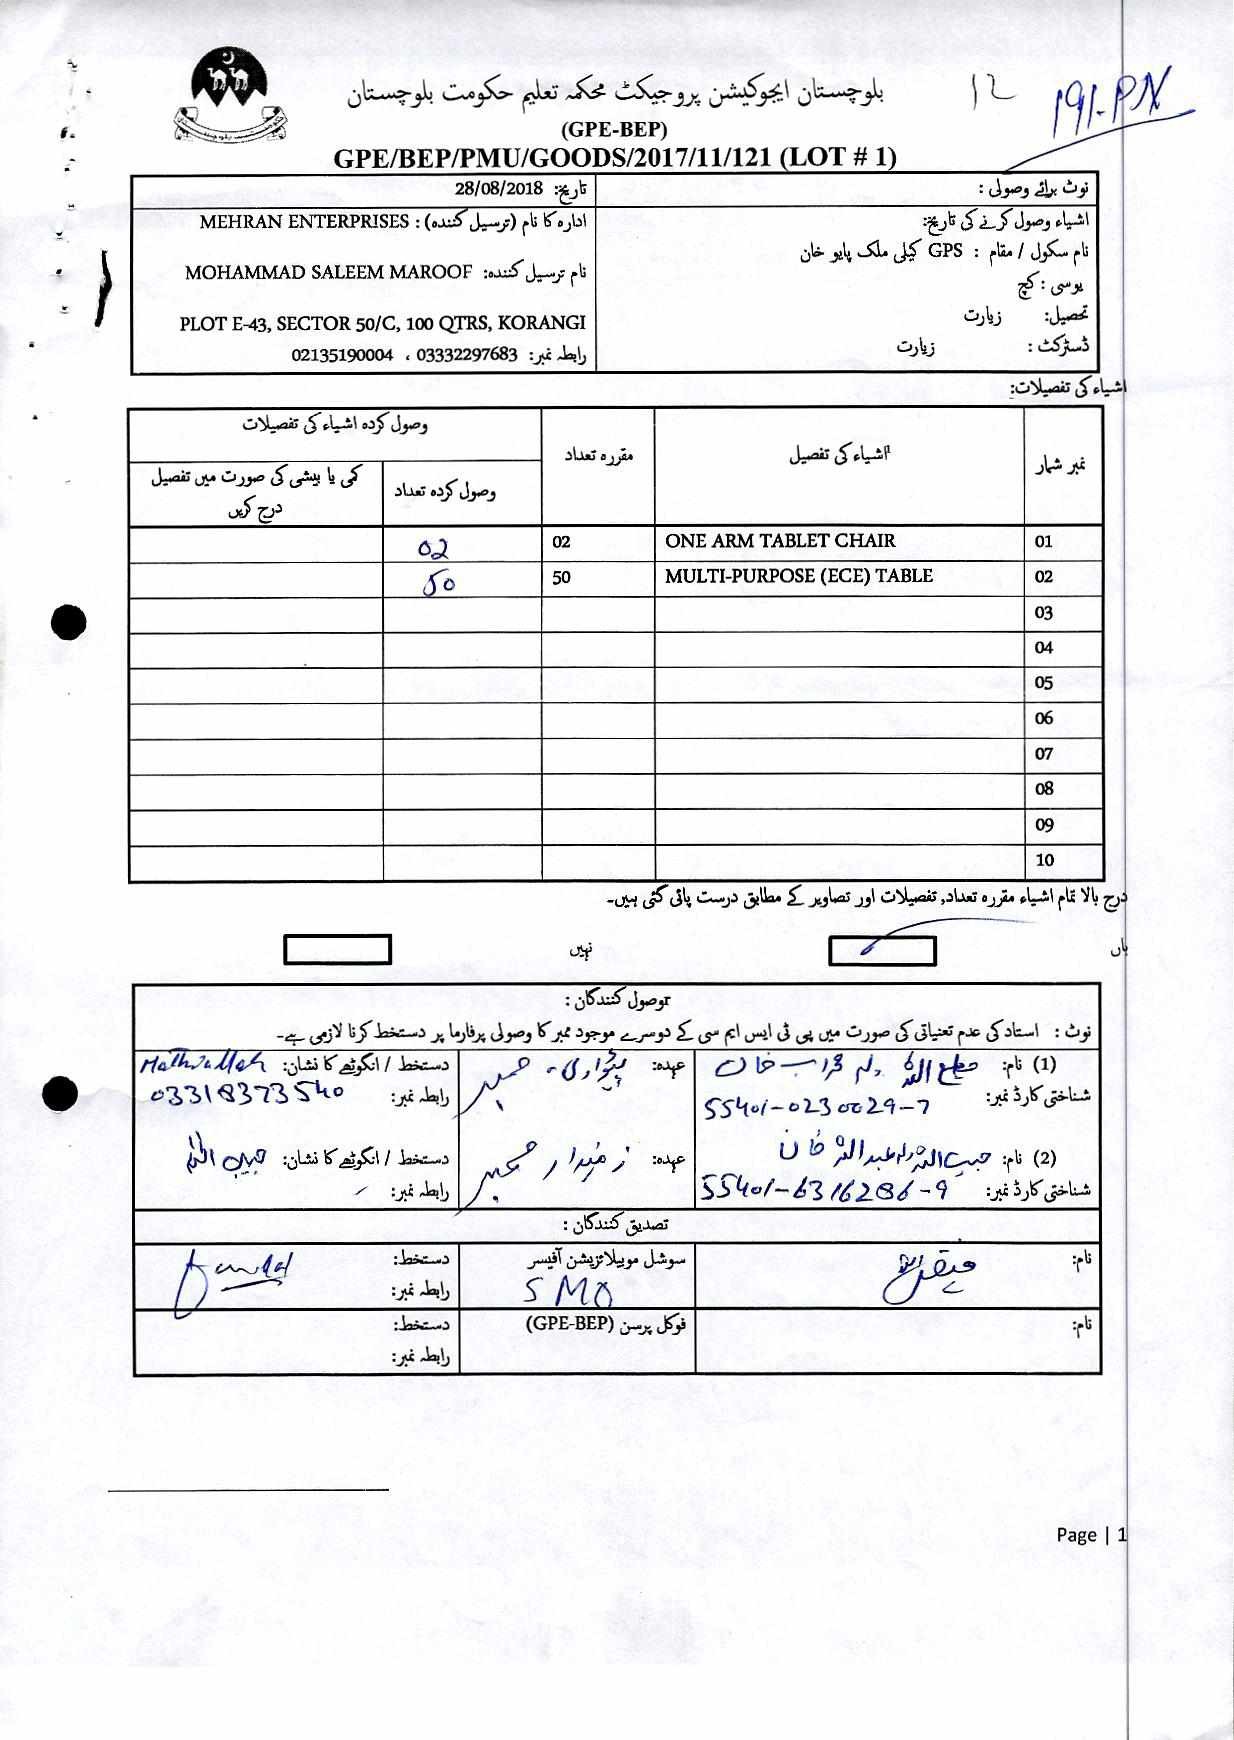 12
191-PN
بلوچستان ایجوکیشن پروجیکٹ محکمہ تعلیم حکومت بلوچستان
(GPE-BEP)
GPE/BEP/PMU/GOODS/2017/11/121 (LOT # 1)
نوٹ برائے وصولی :
تاریخ: 28/08/2018
اشیاء وصول کرنے کی تاریخ:
نام سکول / مقام : GPS کیلی ملک پایو خان
یوسی : کچ
تحصیل: زیارت
ڈسٹرکٹ : زیارت
ادارہ کا نام (ترسیل کنندہ) : MEHRAN ENTERPRISES
نام ترسیل کنندہ: MOHAMMAD SALEEM MAROOF
PLOT E-43, SECTOR 50/C, 100 QTRS, KORANGI
رابطہ نمبر: 03332297683 ، 02135190004
اشیاء کی تفصیلات:
نمبر شمار اشیاء کی تفصیل مقررہ تعداد وصول کردہ اشیاء کی تفصیلات
وصول کردہ تعداد کمی یا بیشی کی صورت میں تفصیل درج کریں
01 ONE ARM TABLET CHAIR 02 02
02 MULTI-PURPOSE (ECE) TABLE 50 50
03
04
05
06
07
08
09
10
درج بالا تمام اشیاء مقررہ تعداد, تفصیلات اور تصاویر کے مطابق درست پائی گئی ہیں۔
ہاں نہیں
وصول کنندگان :
نوٹ : استاد کی عدم تعنیاتی کی صورت میں پی ٹی ایس ایم سی کے دوسرے موجود ممبر کا وصولی پرفارما پر دستخط کرنا لازمی ہے۔
(1) نام: مطیع اللہ ولد محراب خان عہدہ: پٹواری۔ ممبر دستخط / انگوٹھے کا نشان: Mathullah
شناختی کارڈ نمبر: 55401-0230029-7 رابطہ نمبر: 03318373540
(2) نام: حبیب اللہ ولد عبداللہ خان عہدہ: زمیندار ممبر دستخط / انگوٹھے کا نشان: حبیب اللہ
شناختی کارڈ نمبر: 55401-6316286-9 رابطہ نمبر:
تصدیق کنندگان :
نام: سوشل موبیلائزیشن آفیسر دستخط:
SMO رابطہ نمبر:
نام: فوکل پرسن (GPE-BEP) دستخط:
رابطہ نمبر:
Page | 1